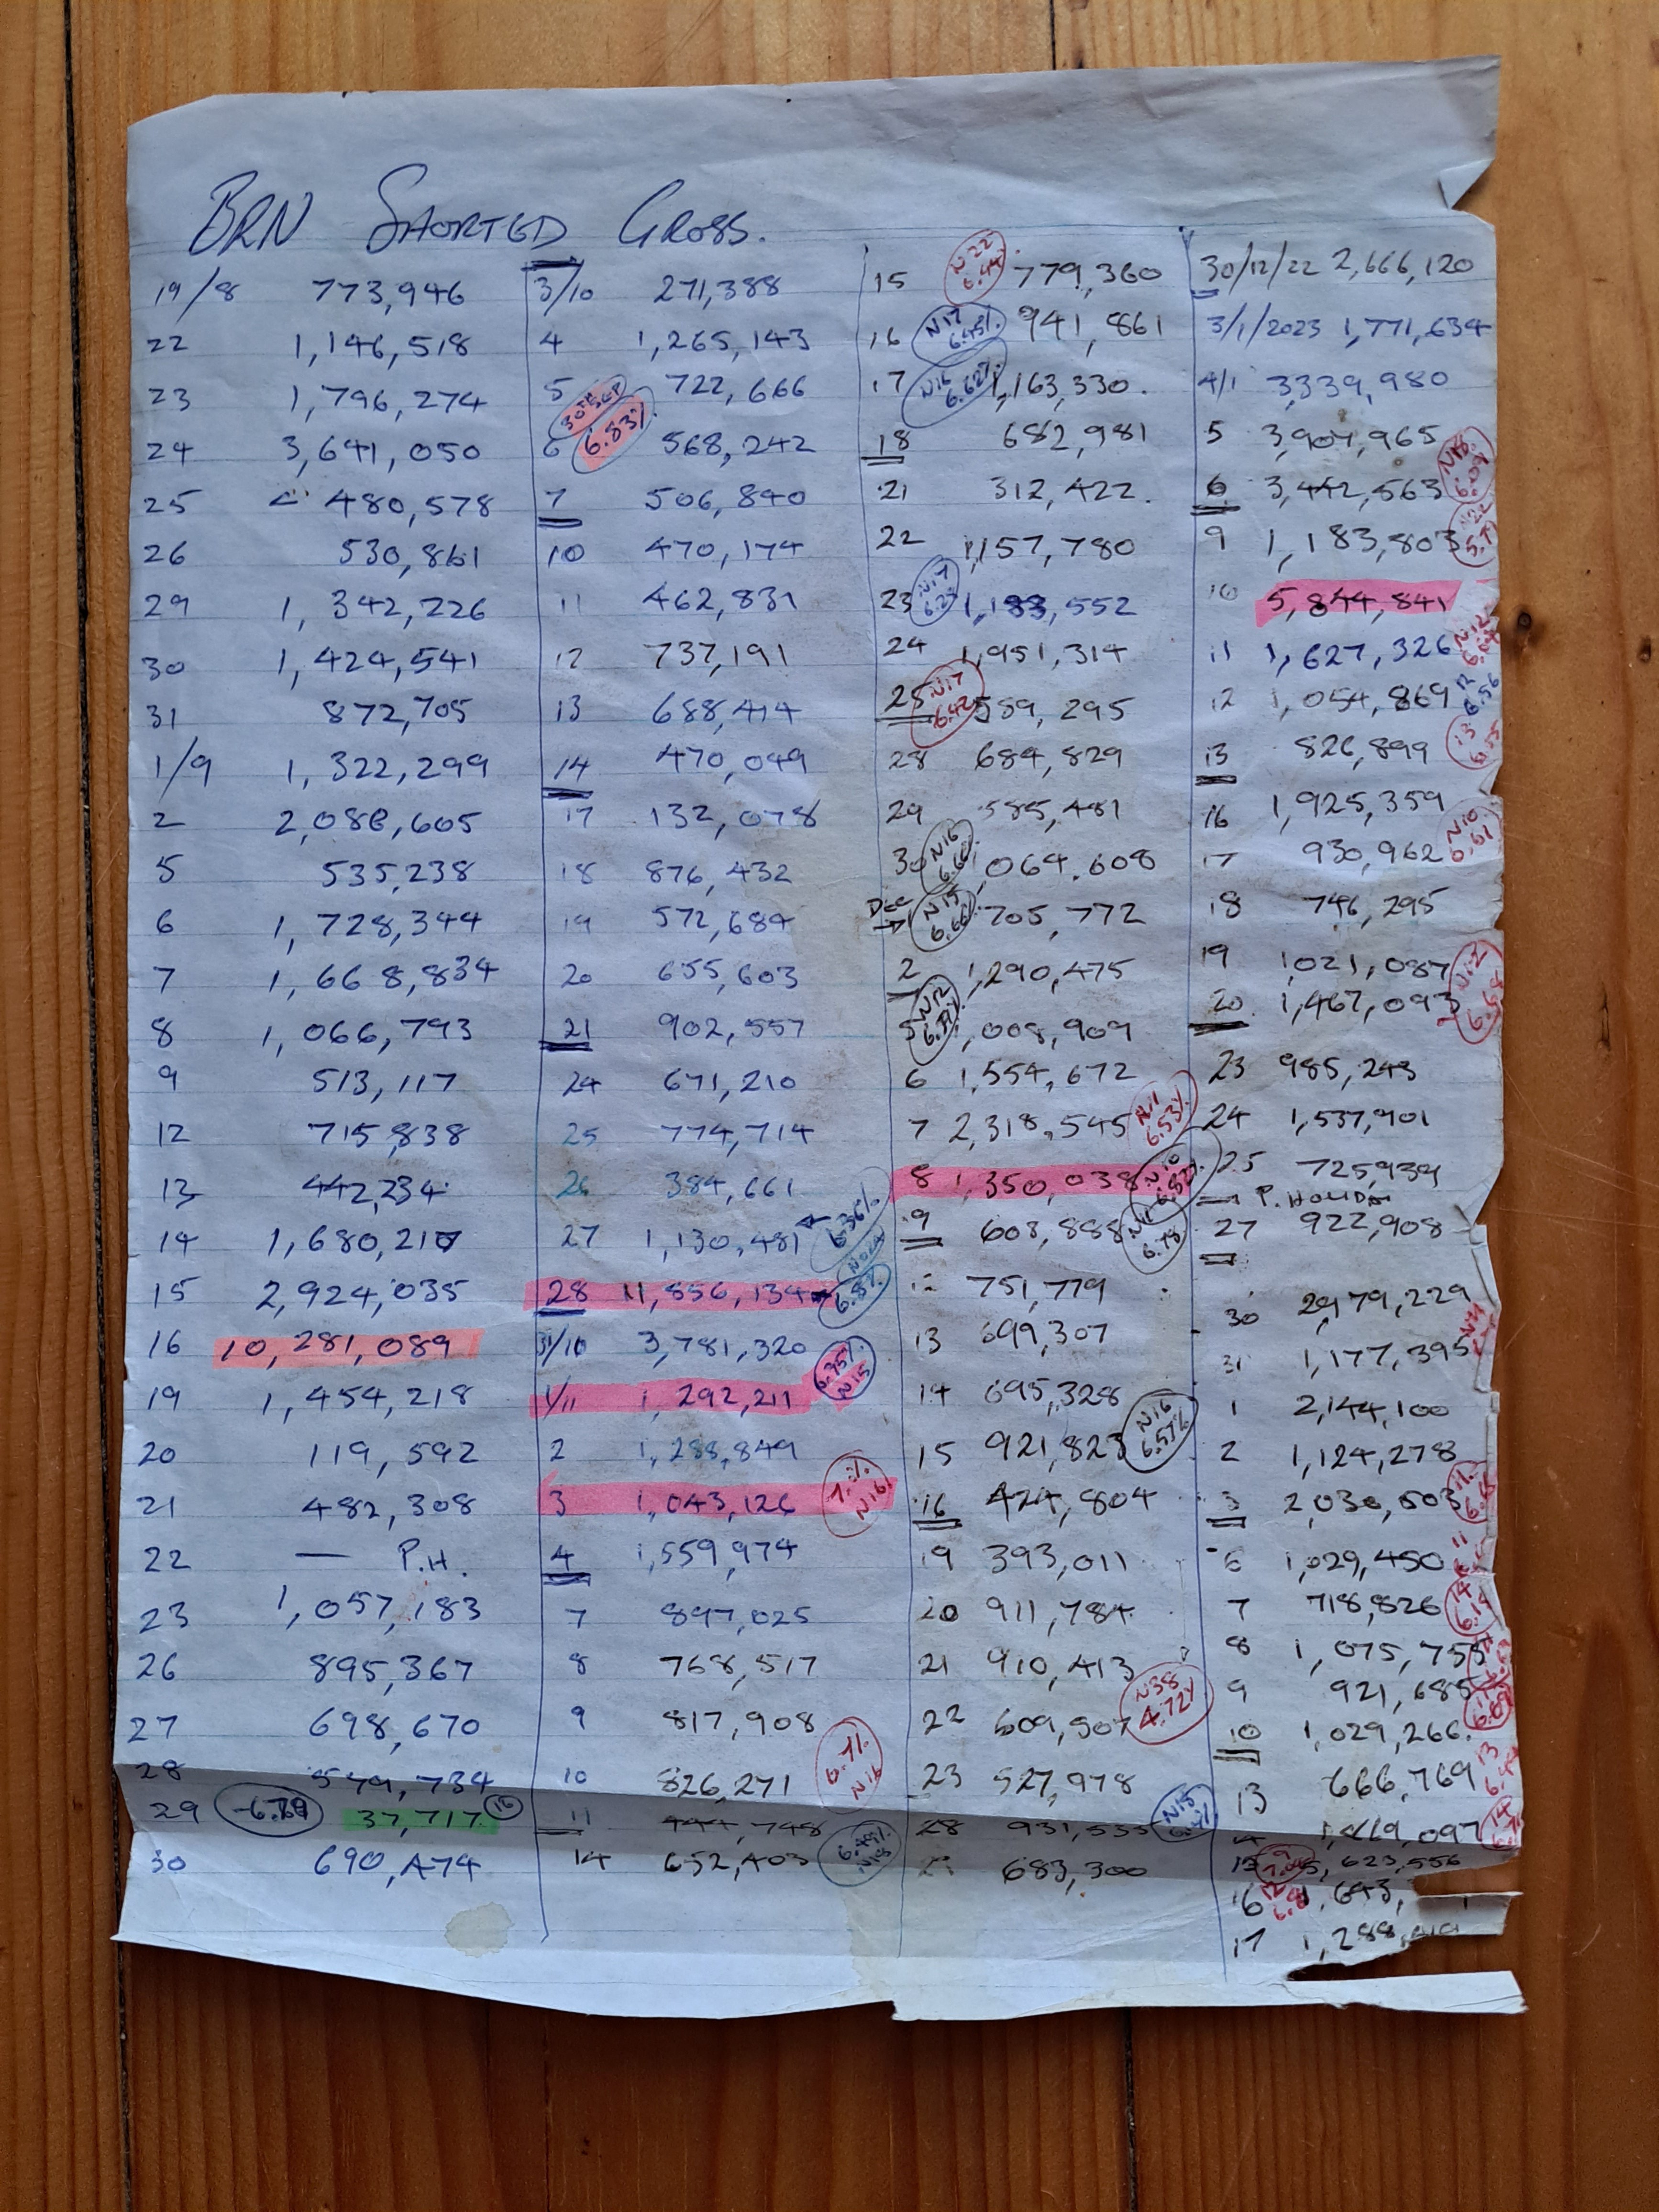 BRN SHORTED GROSS.
19/8 773,946
22 1,146,518
23 1,796,274
24 3,641,050
25 480,578
26 530,861
29 1,342,226
30 1,424,541
31 872,705
1/9 1,322,299
2 2,088,605
5 535,238
6 1,728,344
7 1,668,834
8 1,066,793
9 513,117
12 715,838
13 442,234
14 1,680,217
15 2,924,035
16 10,281,089
19 1,454,218
20 119,592
21 482,308
22 — P.H.
23 1,057,183
26 895,367
27 698,670
28
29 37,717 16
30 690,474
3/10 271,388
4 1,265,143
5 722,666
30TH SEP
6.83%
6 568,242
7 506,840
10 470,174
11 462,831
12 737,191
13 688,414
14 470,049
17 132,078
18 876,432
19 572,684
20 655,603
21 902,557
24 671,210
25 774,714
26 384,661
27 1,130,481 6.36%
28 11,856,134 6.8%
31/10 3,781,320
1/11 1,292,211 N15
2 1,288,849
3 1,043,126 N16
4 1,559,974
7 897,025
8 768,517
9 817,908
10 826,271 6.7% N16
11
14 652,403
15 N22 6.44 779,360
16 N17 6.45% 941,861
17 N16 6.62% 1,163,330.
18 682,981
21 312,422.
22 1,157,780
23 N17 1,183,552
24 1,951,314
25 N17 6.42 589,295
28 684,829
29 585,481
30 N16 ,064,608
Dec → N15 6.66 705,772
2 1,290,475
5 N12 ,008,909
6 1,554,672
7 2,318,545 N11 6.53%
8 1,350,038 N10
9 603,888 N11 6.78
751,779
13 699,307
14 695,328
15 921,823 N16 6.57%
16 424,804
19 393,011
20 911,784
21 910,413
22 609,507 N38 4.72%
23 527,978
28 931,535 N15
683,300
30/12/22 2,666,120
3/1/2023 1,771,634
4/1 3,339,980
5 3,904,965
6 3,442,563 N18
9 1,183,803
10 5,844,841
11 1,627,326 N12
12 1,054,869
13 826,899 13
16 1,925,359
17 930,962 N10 6.61
18 746,295
19 1,021,087
20 1,467,093 N12 6.68
23 985,243
24 1,537,901
25 725,939
— P. HOLIDA
27 922,908
30 2,979,229
31 1,177,395
1 2,144,100
2 1,124,278
3 2,030,503
6 1,029,450
7 718,826 14
8 1,075,755
9 921,685
10 1,029,266.
13 666,769 13
14
15 5,623,556
16 12 ,643,
17 1,288,